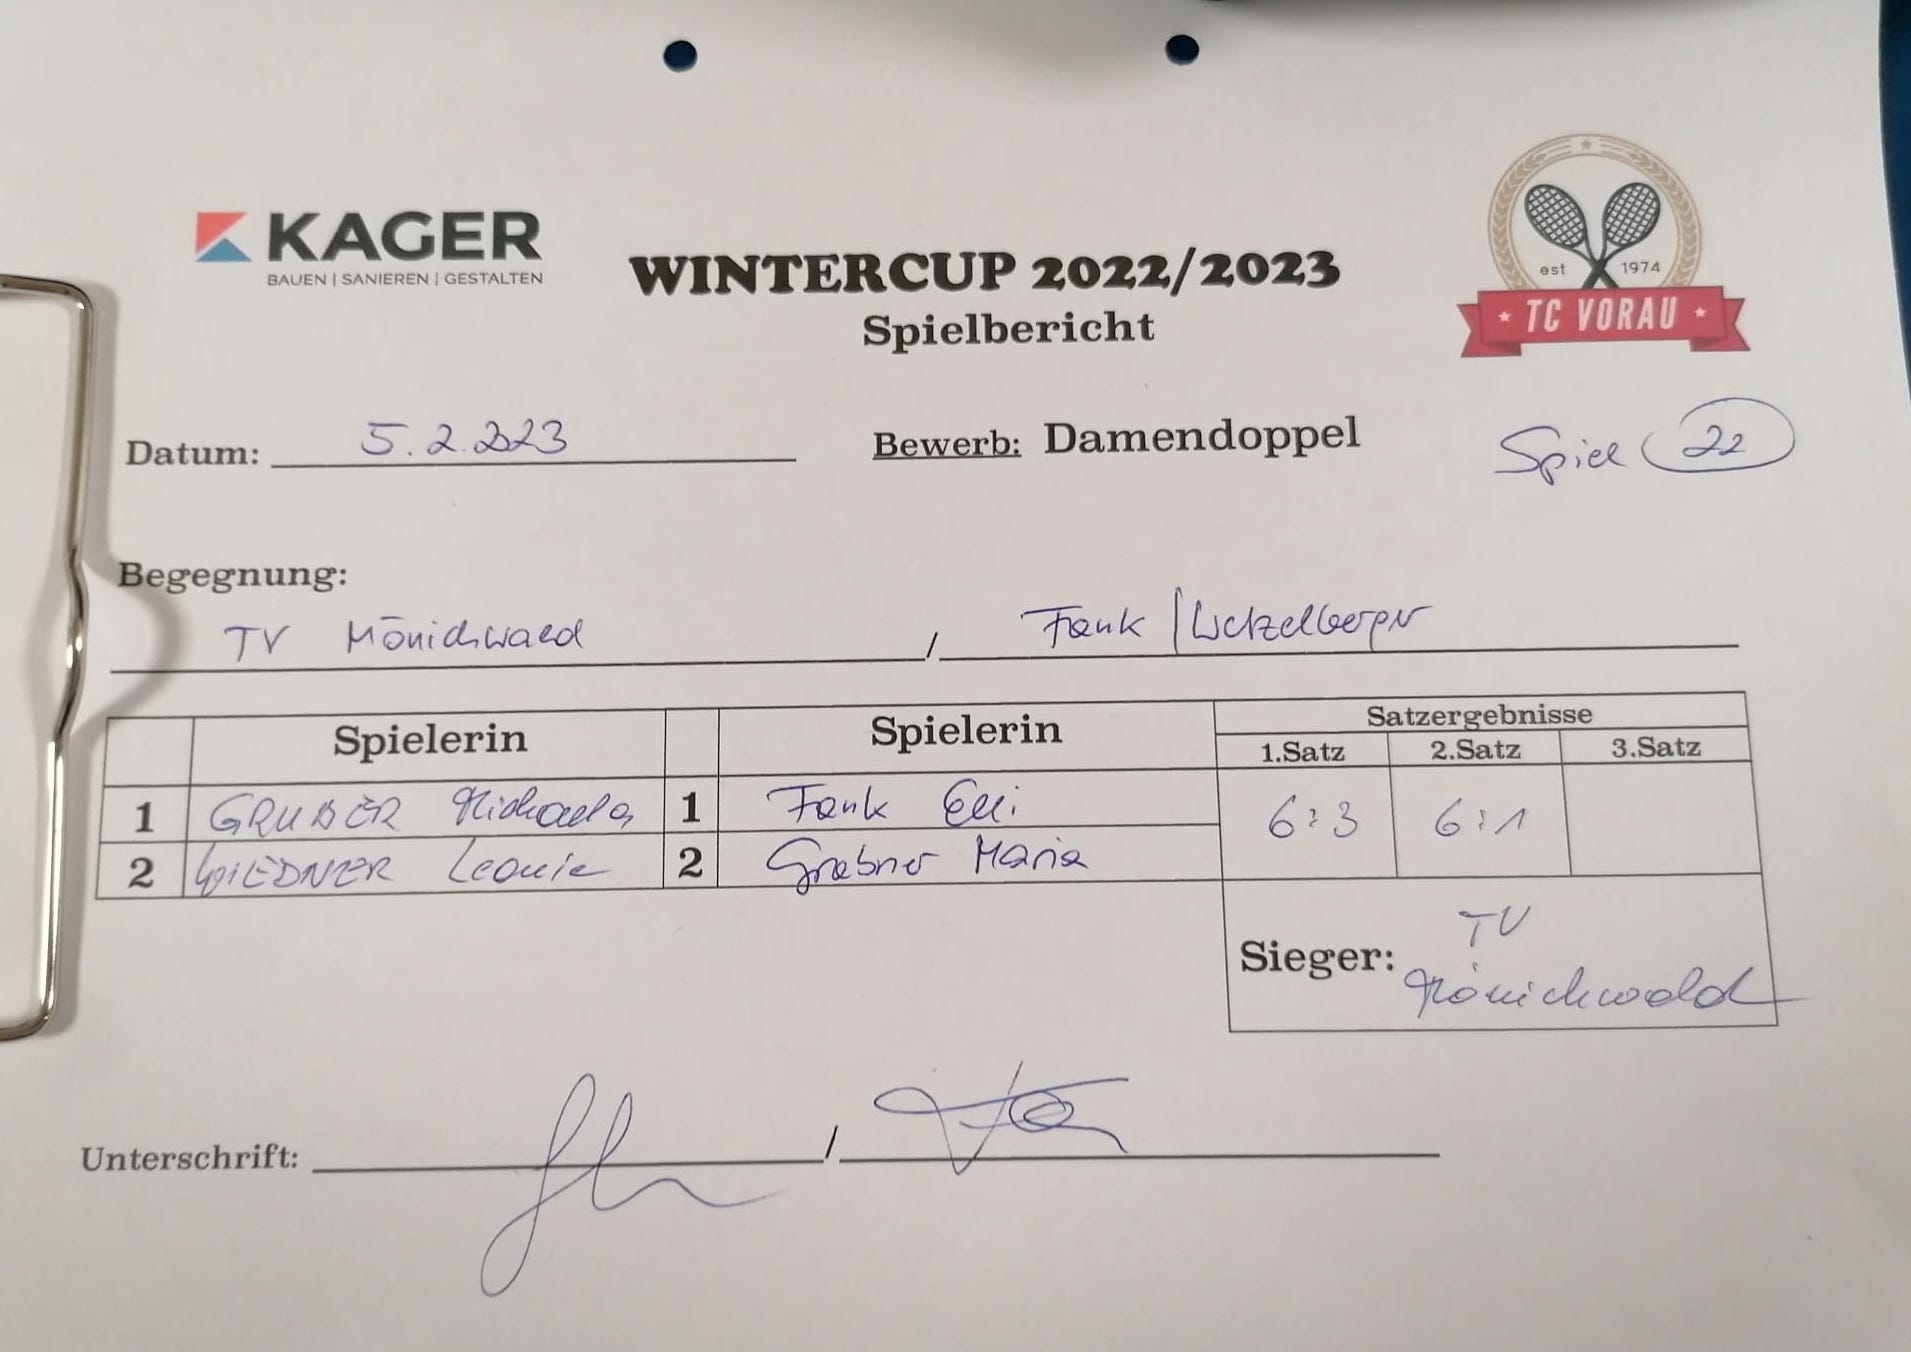 KAGER
BAUEN | SANIEREN | GESTALTEN
WINTERCUP 2022/2023
Spielbericht
est 1974
TC VORAU
Datum: 5.2.2023
Bewerb: Damendoppel
Spiel 22
Begegnung:
TV Mönichwald / Fank / Wetzelberger
Spielerin Spielerin Satzergebnisse
1.Satz 2.Satz 3.Satz
1 GRUBER Michaela 1 Fank Elli 6:3 6:1
2 WIEDNER Leonie 2 Grabner Maria
Sieger: TV
Mönichwald
Unterschrift: /